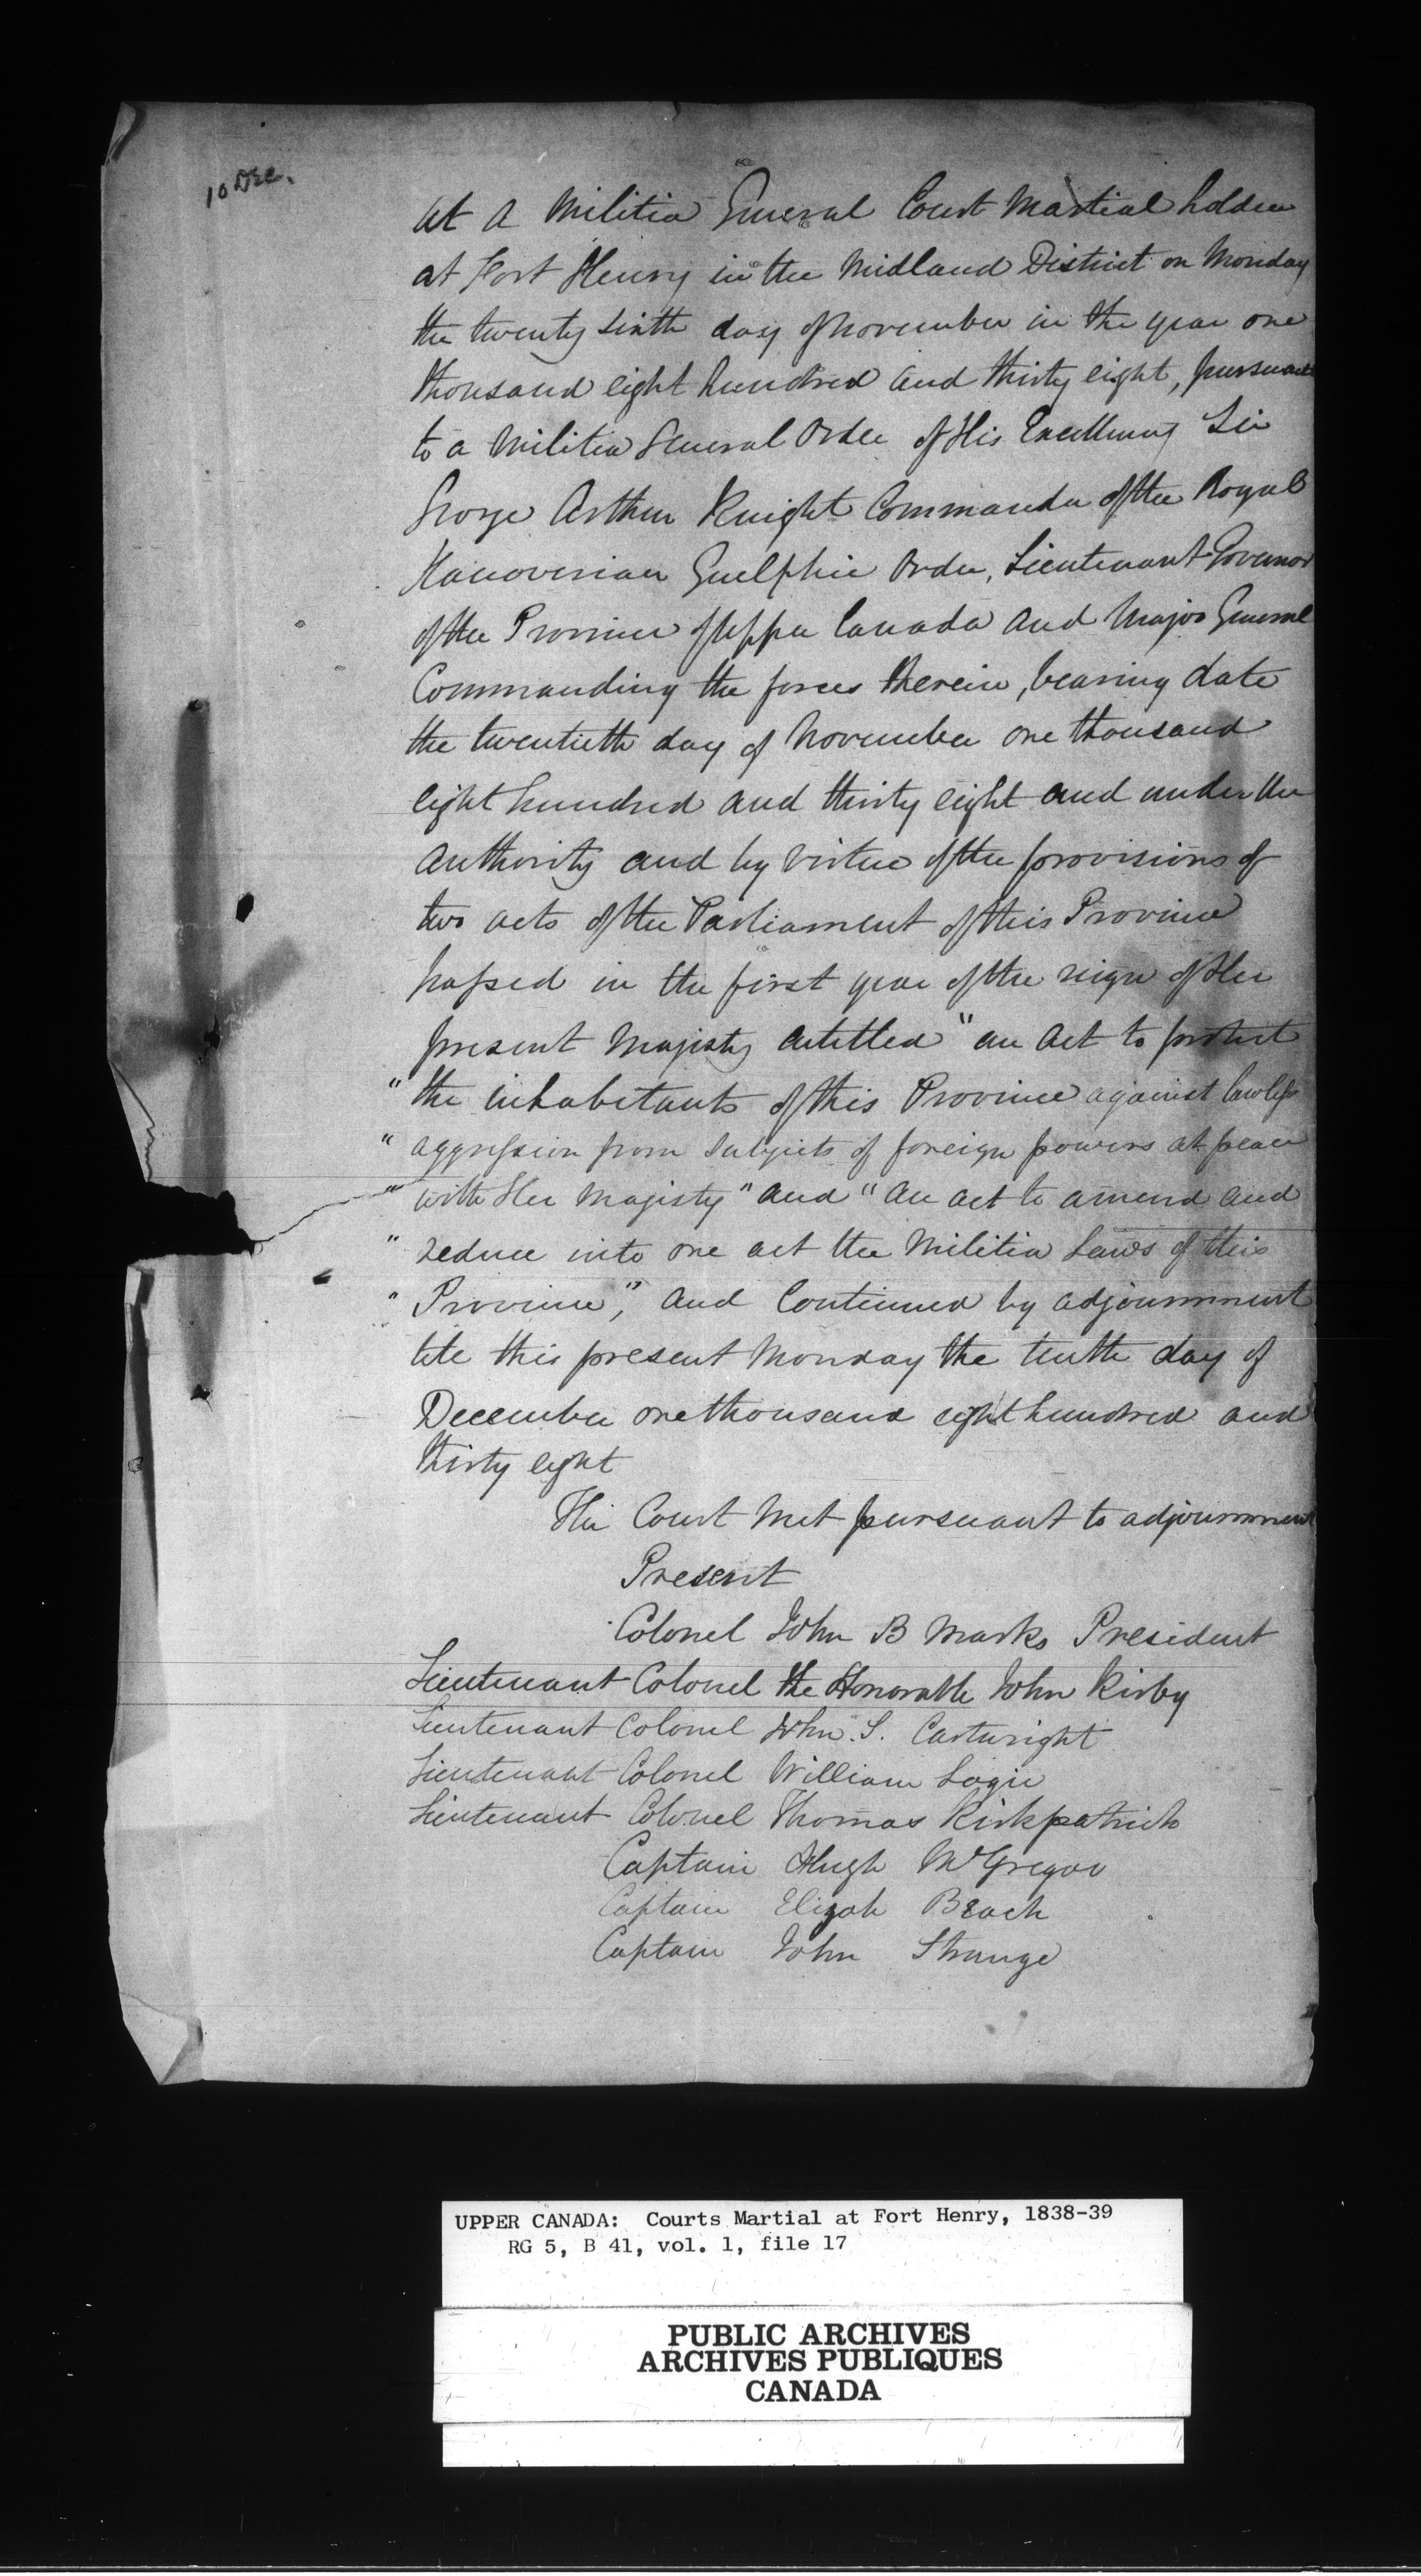 10 Dec.
At a Militia General Court Martial holden
at Fort Henry in the Midland District on Monday
the twenty sixth day of November in the year one
thousand eight hundred and thirty eight, pursuant
to a Militia General Order of His Excellency Sir
George Arthur Knight Commander of the Royal
Hanoverian Guelphic Order, Lieutenant Governor
of the Province of Upper Canada and Major General
Commanding the forces therein, bearing date
the twentieth day of November one thousand
eight hundred and thirty eight and under the
authority and by virtue of the provisions of
two acts of the Parliament of this Province
passed in the first year of the reign of Her
present Majesty entitled "an Act to protect
" the inhabitants of this Province against lawless
" aggression from subjects of foreign powers at peace
" with Her Majesty" and "An act to amend and
" reduce into one act the Militia Laws of this
" Province", and Continued by adjournment
till this present Monday the tenth day of
December one thousand eight hundred and
thirty eight
The Court met pursuant to adjournment
Present
Colonel John B Marks President
Lieutenant Colonel the Honorable John Kirby
Lieutenant Colonel John. S. Cartwright
Lieutenant Colonel William Logie
Lieutenant Colonel Thomas Kirkpatrick
Captain Hugh McGregor
Captain Elijah Beach
Captain John Strange
UPPER CANADA: Courts Martial at Fort Henry, 1838-39
RG 5, B 41, vol. 1, file 17
PUBLIC ARCHIVES
ARCHIVES PUBLIQUES
CANADA